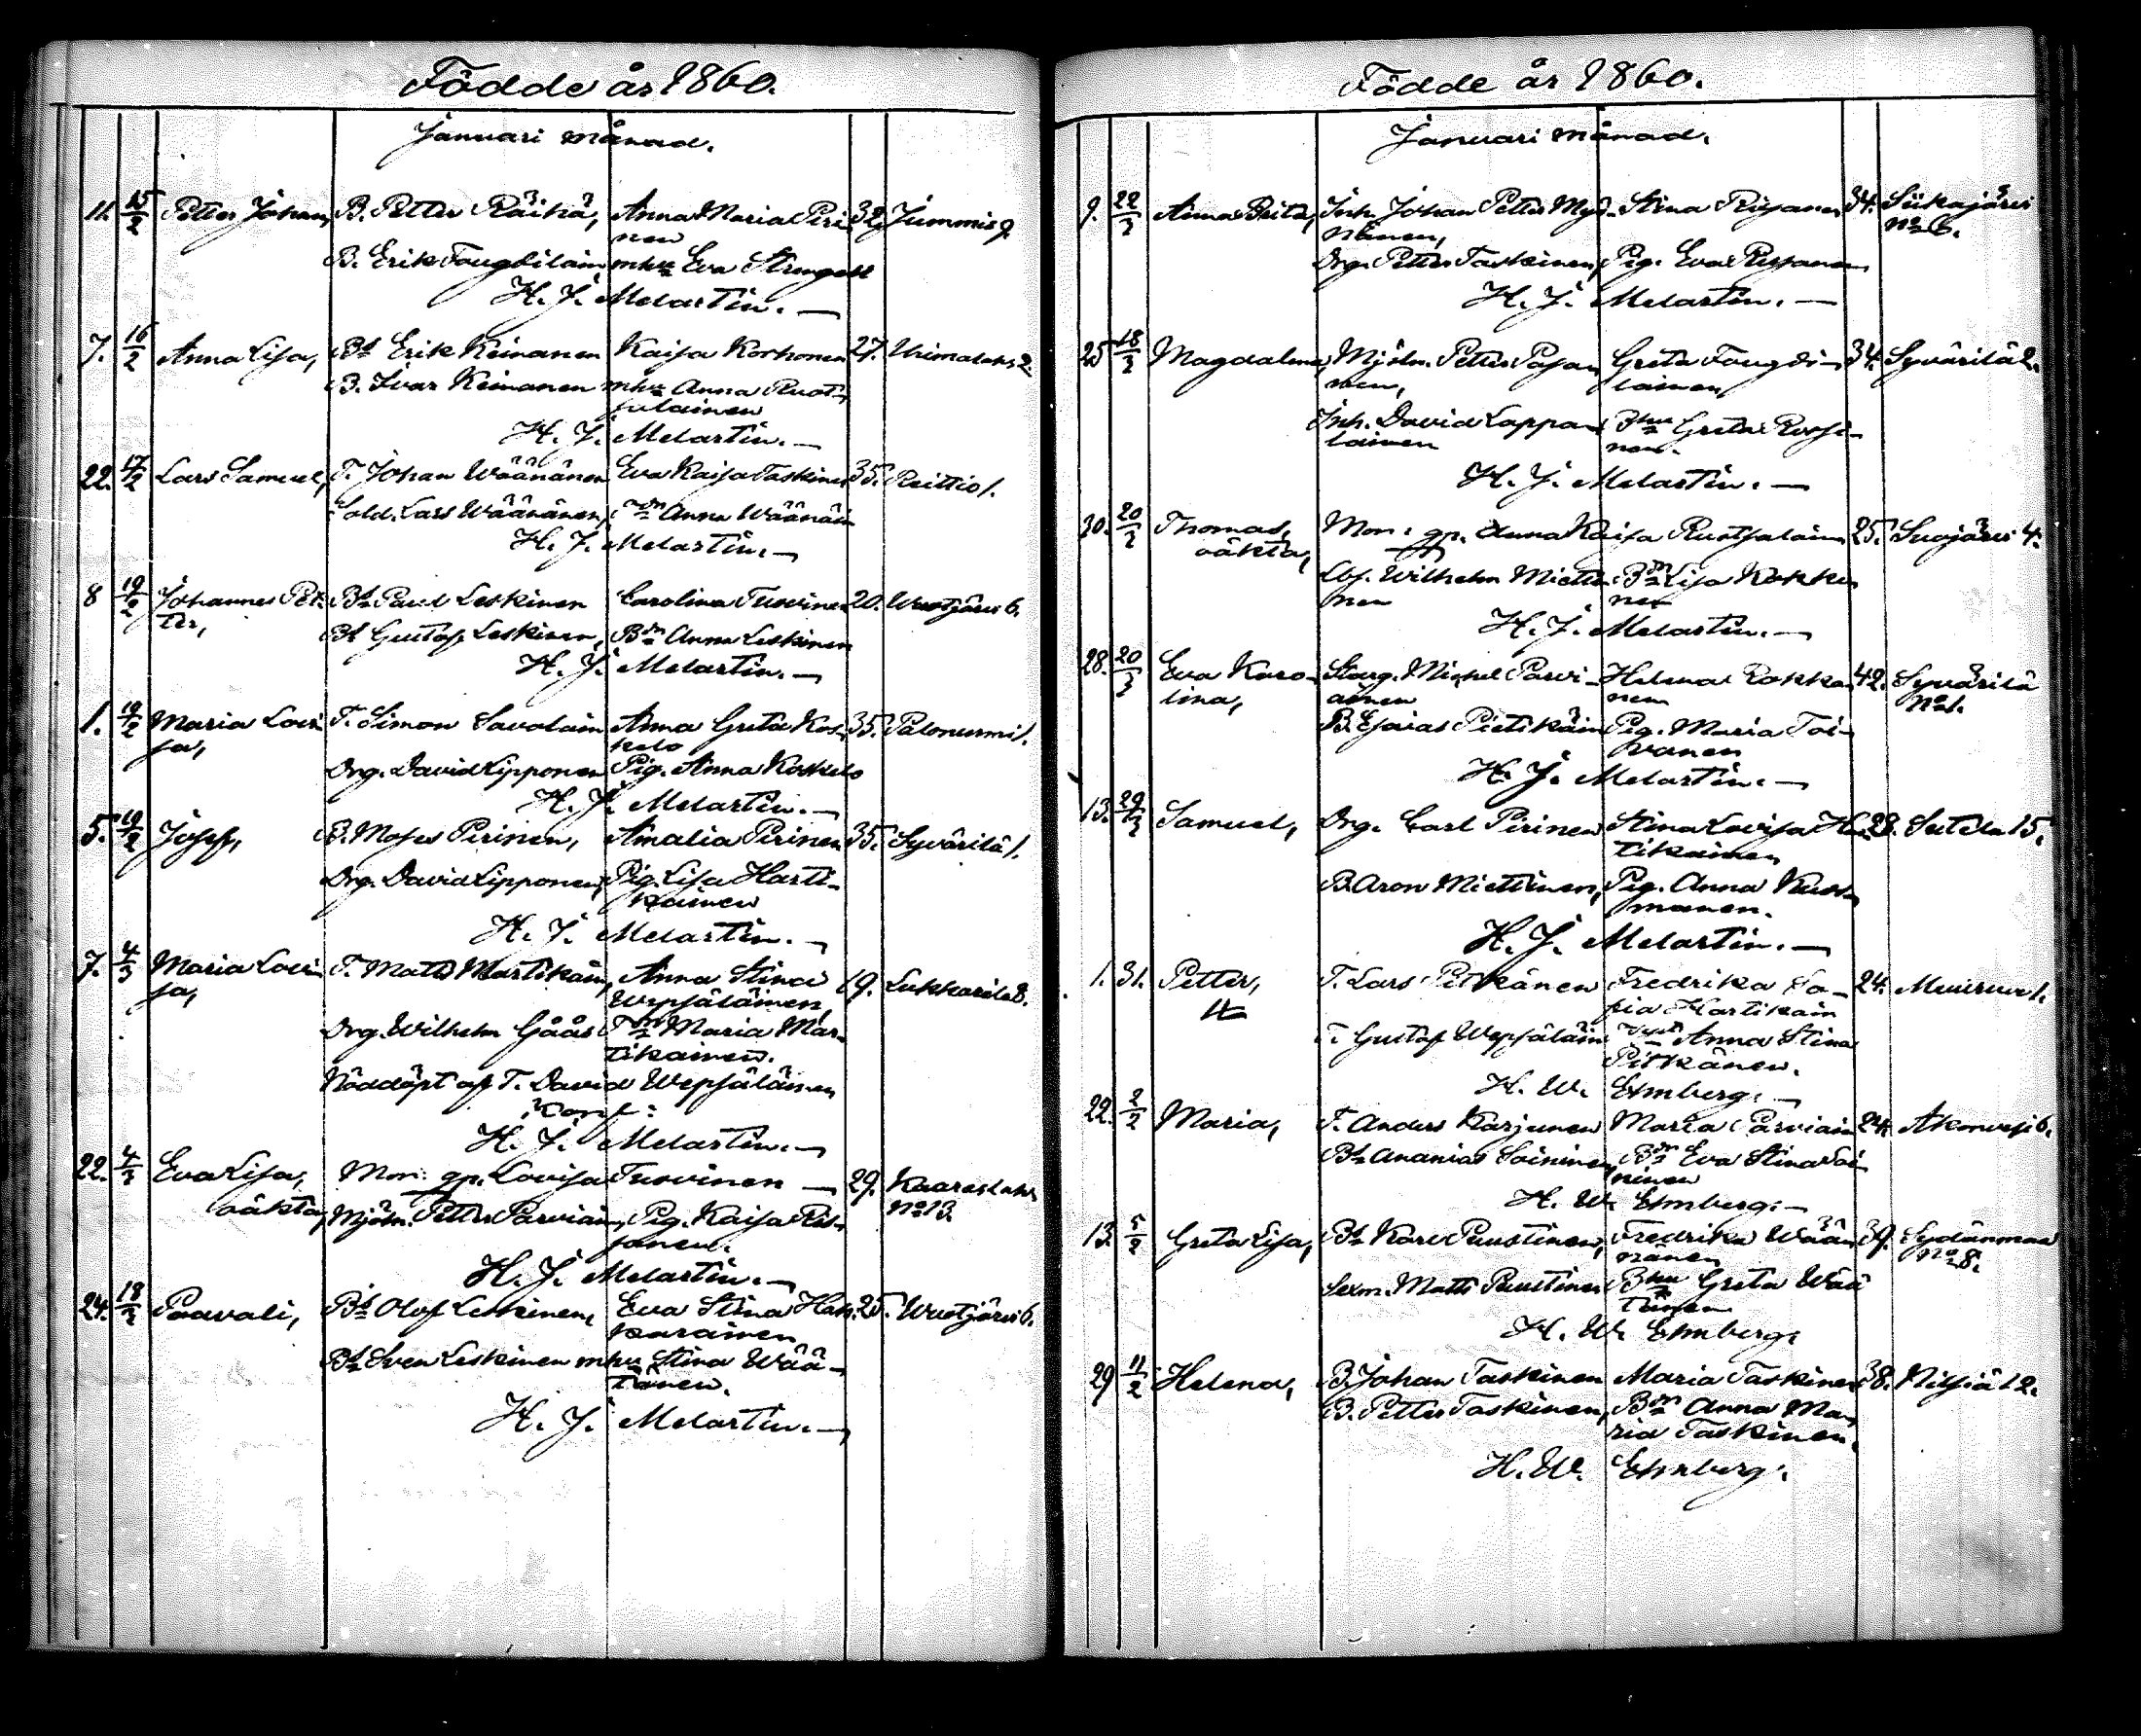 Födde år 1860.
Januari månad.
11. 15/2 Petter Johan, B. Petter Räihä, Anna Maria Piri- 32. Jummis 9.
nen
B. Erik Fougdilain, mhu Eva
H. J. Melartin. —
7. 16/2 Anna Lisa, Bd Erik Keinanen Kaisa Korhonen 27. Urimalaks 2.
B. Ivar Keinanen mhu Anna Ruot-
salainen
H. J. Melartin. —
22. 17/2 Lars Samuel, T. Johan Wäänänen Eva Kaisa Taskinen 35. Reittio 1.
Sold. Lars Wäänänen, Anna Wäänäin
H. J. Melartin. —
8 19/2 Johannes Pet- Bd Paul Leskinen Carolina Turvinen 20. Wuotjärvi 6.
ter,
Bd Gustaf Leskinen, Bdn Anna Leskinen
H. J. Melartin. —
1. 19/2 Maria Lovi- T. Simon Savolain Anna Greta Kos- 35. Palonurmi 1.
sa, kelo
Drg. David Lipponen Pig. Anna Koskelo
H. J. Melartin. —
5. 19/2 Josef, B. Moses Pirinen, Amalia Pirinen 35. Syvärilä 1.
Drg. David Lipponen, Pig. Lisa Harti-
kainen
H. J. Melartin. —
7. 4/3 Maria Lovi- T. Matts Martikain, Anna Stina 19. Lukkarila 8.
sa, Wepsäläinen,
Drg. Wilhelm Gåås Tn Maria Mar-
tikainen.
Nöddöpt af T. David Wepsäläinen
Konf:
H. J. Melartin. —
22. 4/3 Eva Lisa, Mon: gp. Lovisa Turvinen — 29. Kaaraslaks
oäkta, Mjöln. Petter Parviain, Pig. Kaisa No 13.
H. J. Melartin. —
24. 18/3 Paavali, Bd Olof Leskinen, Eva Stina Hak- 25. Wuotjärvi 6.
karainen
Bd Sven Leskinen mhu Stina Wää-
tänen.
H. J. Melartin. —
Födde år 1860.
Januari månad.
9. 22/3 Anna Brita, Inh. Johan Petter Myk- Stina Rissanen 34. Siikajärvi
känen, No 6.
Drg. Petter Taskinen, Pig. Eva Rissanen
H. J. Melartin. —
25 18/3 Magdalena, Mjöln. Petter Pasan Greta Fougdi- 34. Syvärilä 2.
nen, lainen,
Inh. David Lappa- Bhu Greta Roosi-
lainen nen.
H. J. Melartin. —
30. 20/3 Thomas, Mon: gp. Anna Kaisa Ruotsalain 25. Suojärvi 4.
oäkta,
Lbf. Wilhelm Mietti- Bdn Lisa Kokko
nen nen
H. J. Melartin. —
28. 20/3 Eva Karo- Michel Parvi- Helena Rokka 42. Syvärilä
lina, ainen nen No 1.
B. Esaias Pietikäin Pig. Maria Toi-
vanen
H. J. Melartin. —
13. 29/3 Samuel, Drg. Carl Pirinen Stina Lovisa Har- 28. Sutela 15.
tikainen
B. Aron Miettinen, Pig. Anna Kuos-
manen.
H. J. Melartin. —
1. 31. Petter, T. Lars Pitkänen Fredrika So- 24. Muuruves 1.
fia Hartikain
T. Gustaf Wepsäläin Anna Stina
Pitkänen.
H. W. Ehnberg. —
22. 2/2 Maria, T. Anders Karjunen Maria Parviain 24. Akonvesi 6.
Bd Ananias Soininen, Bdn Eva Stina Soi-
ninen
H. W. Ehnberg. —
13. 5/2 Greta Lisa, Bd Karl Puustinen, Fredrika Wää- 39. Sydänmaa
nänen No 8.
Sexm. Matts Puustinen Bhu Greta Wää
tänen
H. W. Ehnberg.
29 11/2 Helena, B. Johan Taskinen Maria Taskinen 38. Nilsiä 12.
B. Petter Taskinen, Bdn Anna Ma-
ria Taskinen.
H. W. Ehnberg.